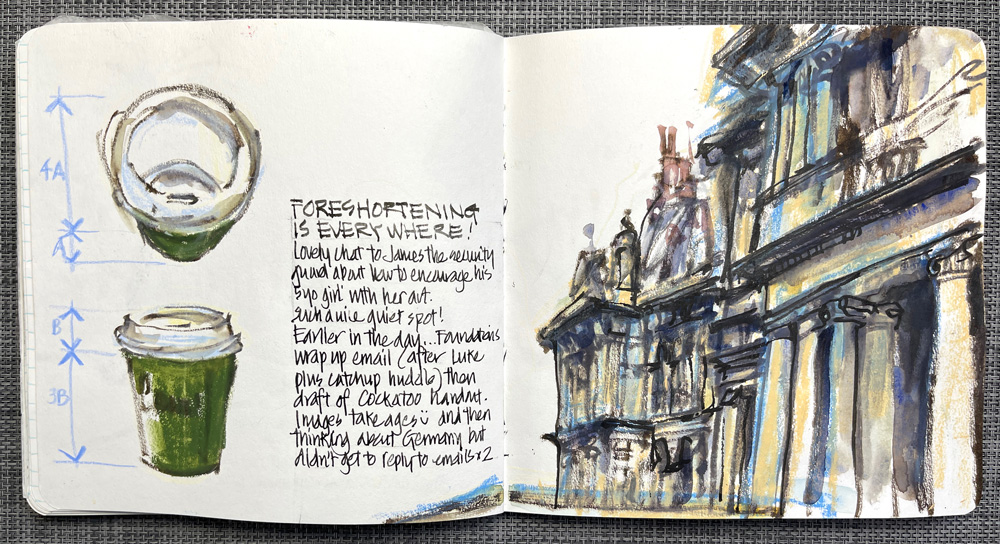 4A
A
B
3B
FORESHORTENING
IS EVERYWHERE!
Lovely chat to James the security
guard about how to encourage his
5yo girl with her art.
such a nice quiet spot!
Earlier in the day... Foundations
wrap up email (after Luke
plus catchup huddle) then
draft of Cockatoo handout.
Images take ages and then
thinking about Germany but
didn't get to reply to emails x2